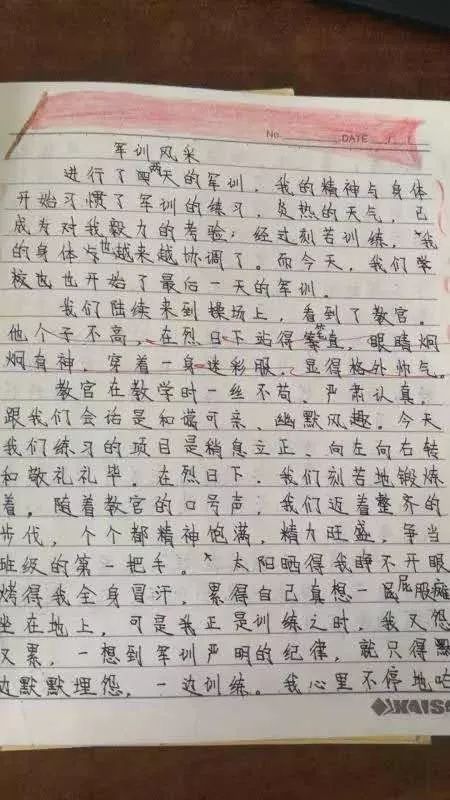 No. DATE / /
军训风采
进行了两天的军训，我的精神与身体
开始习惯了军训的练习，炎热的天气，已
成为对我毅力的考验；经过刻苦训练，我
的身体也越来越协调了。而今天，我们学
校也也开始了最后一天的军训。
我们陆续来到操场上，看到了教官。
他个子不高，在烈日下站得笔直，眼睛炯
炯有神，穿着一身迷彩服，显得格外帅气。
教官在教学时一丝不苟，严肃认真，
跟我们会话是和谐可亲，幽默风趣。今天
我们练习的项目是稍息立正、向左向右转
和敬礼礼毕。在烈日下，我们刻苦地锻炼
着。随着教官的口号声，我们迈着整齐的
步伐，个个都精神饱满，精力旺盛，争当
班级的第一把手。太阳晒得我睁不开眼
烤得我全身冒汗，累得自己真想一屁股瘫
坐在地上，可是我正是训练之时，我又怨
又累，一想到军训严明的纪律，就只得默
边默默埋怨，一边训练。我心里不停地咕
KAIS